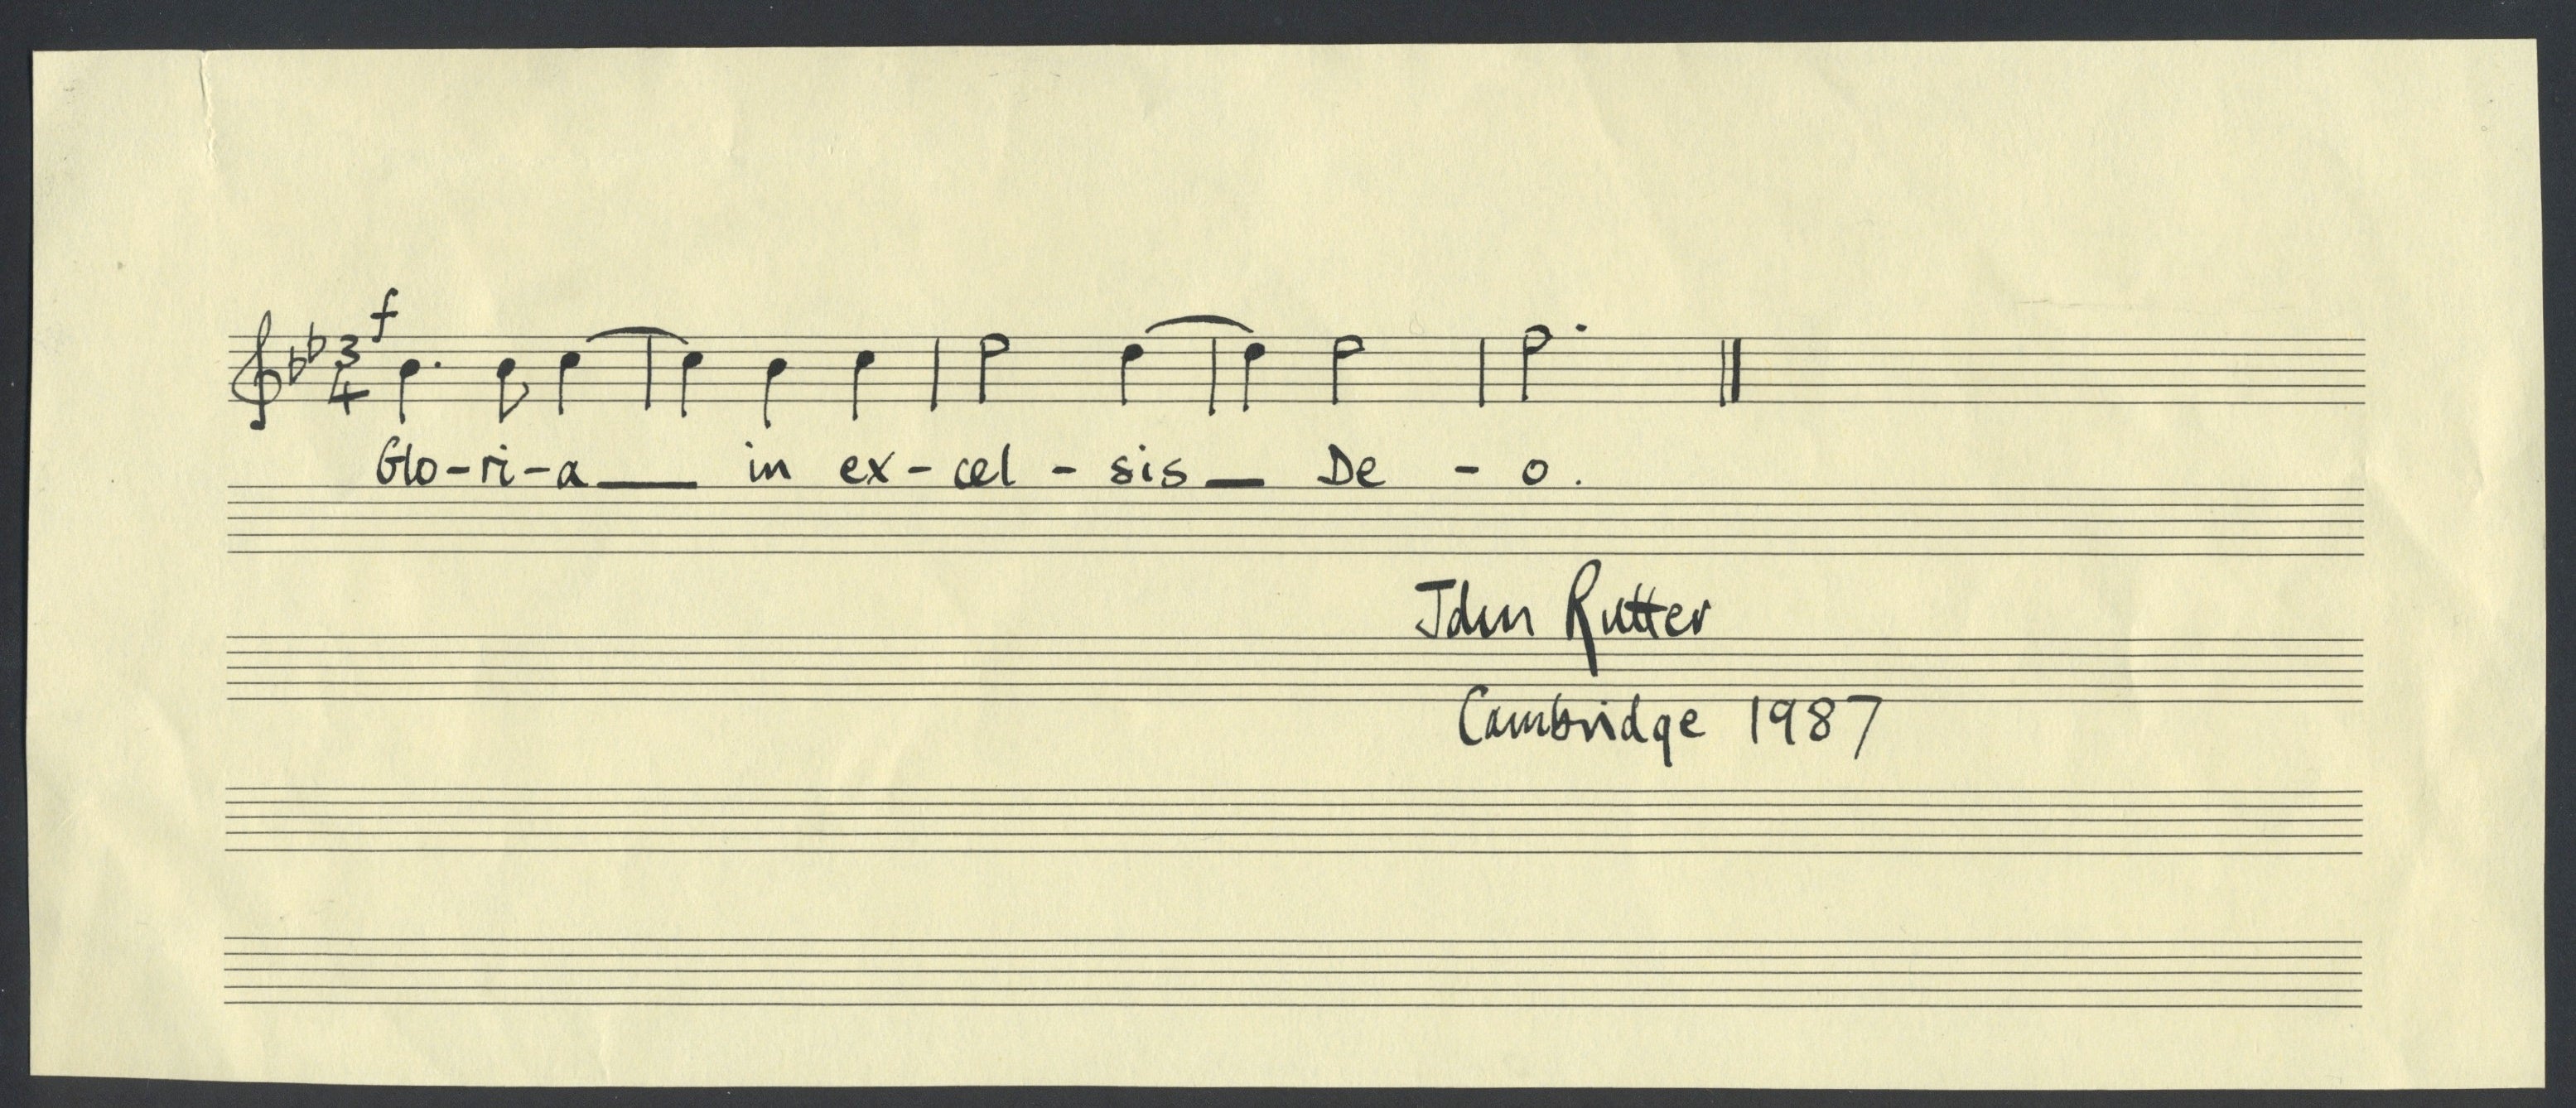 f
3
4
Glo-ri-a___ in ex-cel-sis_ De-o.
John Rutter
Cambridge 1987